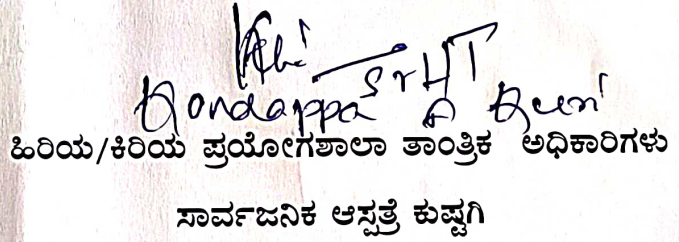 Kondappa Sr HT
ಹಿರಿಯ/ಕಿರಿಯ ಪ್ರಯೋಗಶಾಲಾ ತಾಂತ್ರಿಕ ಅಧಿಕಾರಿಗಳು
ಸಾರ್ವಜನಿಕ ಆಸ್ಪತ್ರೆ ಕುಷ್ಟಗಿ